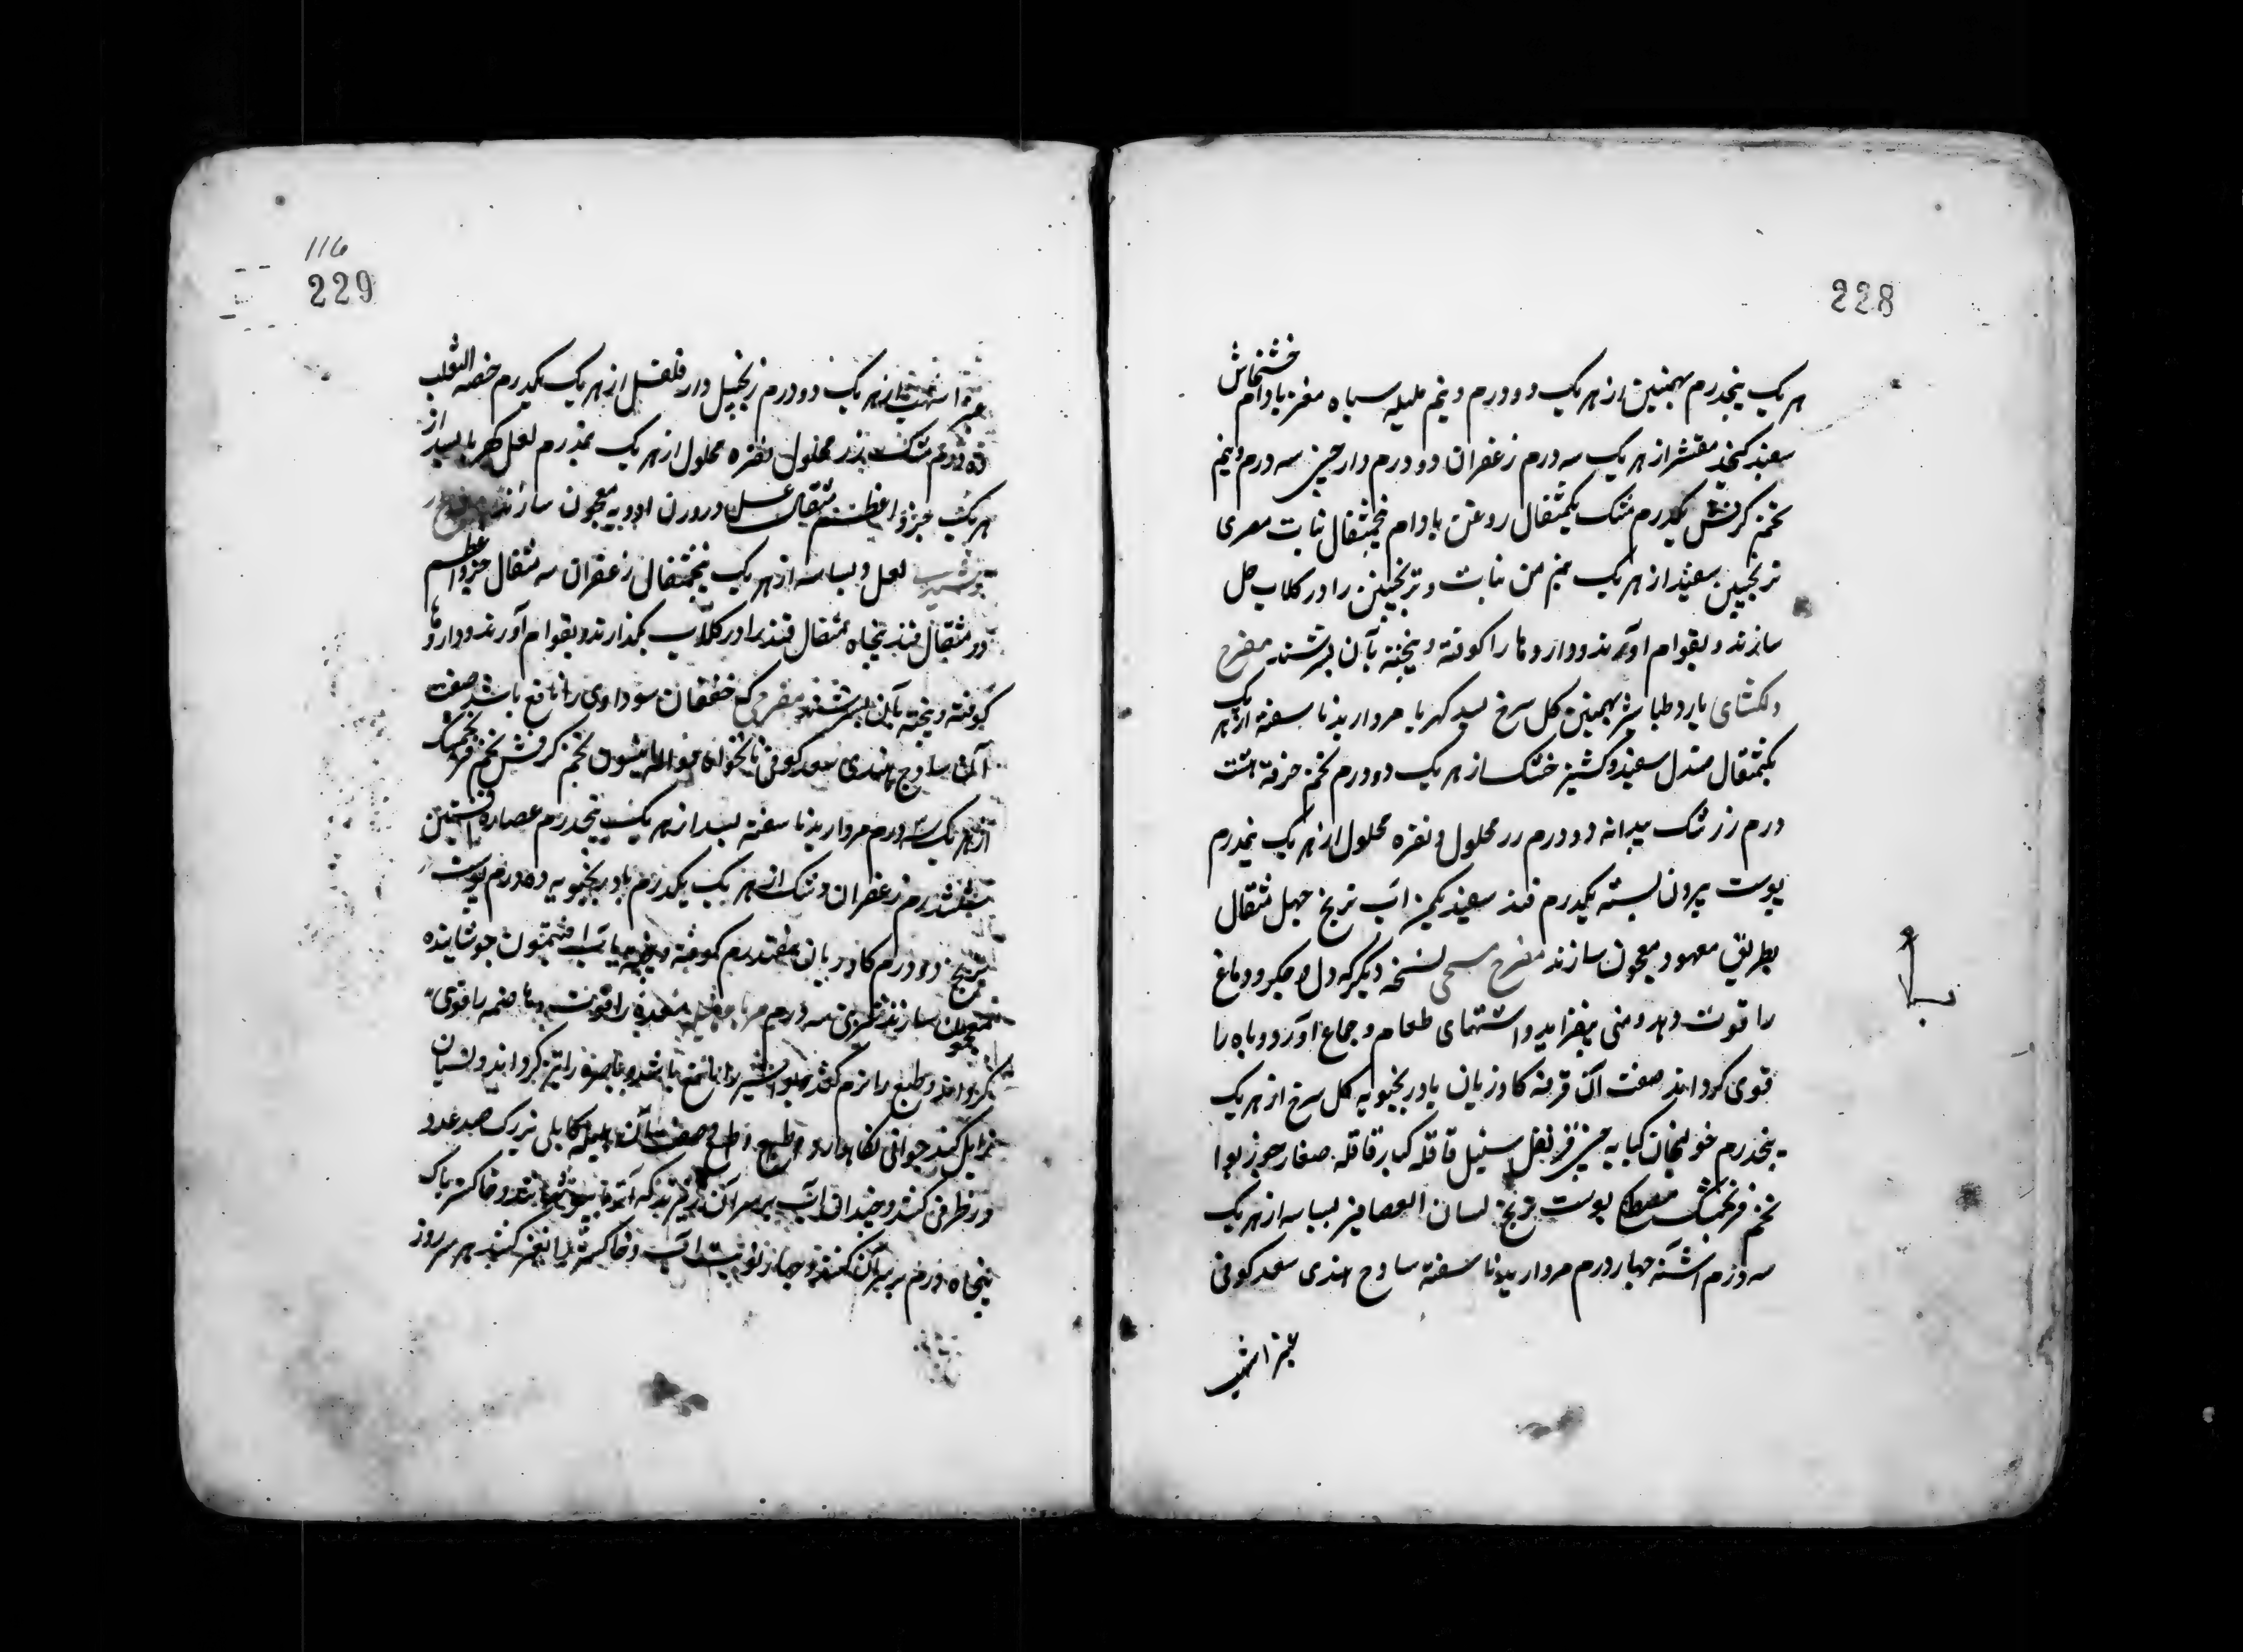 228
هر یک پنجدرم بهمنین از هر یک دو درم و نیم هلیله سیاه مغز بادام خشخاش
سفید کنجد مقشر از هر یک سه درم زعفران دو درم دارچینی سه درم و نیم
تخم کرفس یکدرم مشک یکمثقال روغن بادام پنجمثقال نبات مصری
ترنجبین سفید از هر یک نیم من نبات و ترنجبین را در کلاب حل
سازند و بقوام آورند و داروها را کوفته و پیخته بآن بسرشند مفرح
دلکشای بارد طباشیر بهمنین کل سرخ بسد کهربا مروارید ناسفته از هر یک
یکمثقال صندل سفید و کشنیز خشک از هر یک دو درم تخم خرفه هشت
درم زرشک بیدانه دو درم زر محلول و نقره محلول از هر یک نیمدرم
پوست بیرون پسته یکدرم قند سفید یکمن آب ترنج چهل مثقال
بطریق معهود معجون سازند مفرح مسیحی نسخه دیگر که دل و جکر و دماغ
را قوت دهد و منی بیفزاید و اشتهای طعام و جماع آورد و باه را
قوی کرداند صفت آن قرفه کاوزبان بادرنجبویه کل سرخ از هر یک
پنجدرم خولنجان کبابه چینی قرنفل سنبل قاقله کبار قاقله صغار جوز بوا
تخم فرنجمشک مصطکی پوست ترنج لسان العصافیر بسباسه از هر یک
سه درم اشنه چهار درم مروارید ناسفته ساذج هندی سعد کوفی
عنبر اشهب
116
229
عنبر اشهب از هر یک دو درم زنجبیل دار فلفل از هر یک یکدرم خصیه الثعلب
ده درم مشک زر محلول نقره محلول از هر یک نیمدرم لعل کهربا بسد از
هر یک جزو اعظم مثقال عسل دو وزن ادویه معجون سازند
لعل و بسباسه از هر یک پنجمثقال زعفران سه مثقال جزو اعظم
دو مثقال قند پنجاه مثقال قند را در کلاب بکذارند و بقوام آورند و داروها
کوفته و پیخته بآن بسرشند مفرحی که خفقان سوداوی را نافع باشد صفت
آن ساذج هندی سعد کوفی نانخواه تخم کرفس تخم فرنجمشک
از هر یک سه درم مروارید ناسفته بسد از هر یک پنجدرم عصاره افسنتین
ششدرم زعفران و مشک از هر یک یکدرم بادرنجبویه ده درم پوست
ترنج دو درم کاوزبان هفتدرم کوفته و پیخته بآب افتیمون جوشانیده
معجون سازند شربتی سه درم معده را قوت دهد و هاضمه را قوی
کرداند و طبع را نرم کند و بواسیر را نافع باشد و باصره را تیز کرداند و نسیان
زایل کند و جوانی نکاه دارد صفت آن هلیله کابلی بزرک صد عدد
در ظرفی کنند و چندان آب بر سر آن ریزند که آنرا بپوشاند و خاکستر پاک
پنجاه درم بر سر آن کنند و چهار نوبت آب و خاکستر را تغیر کنند هر سه روز